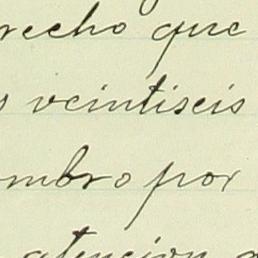 recho que
s veintiseis
mbro por
atencion a